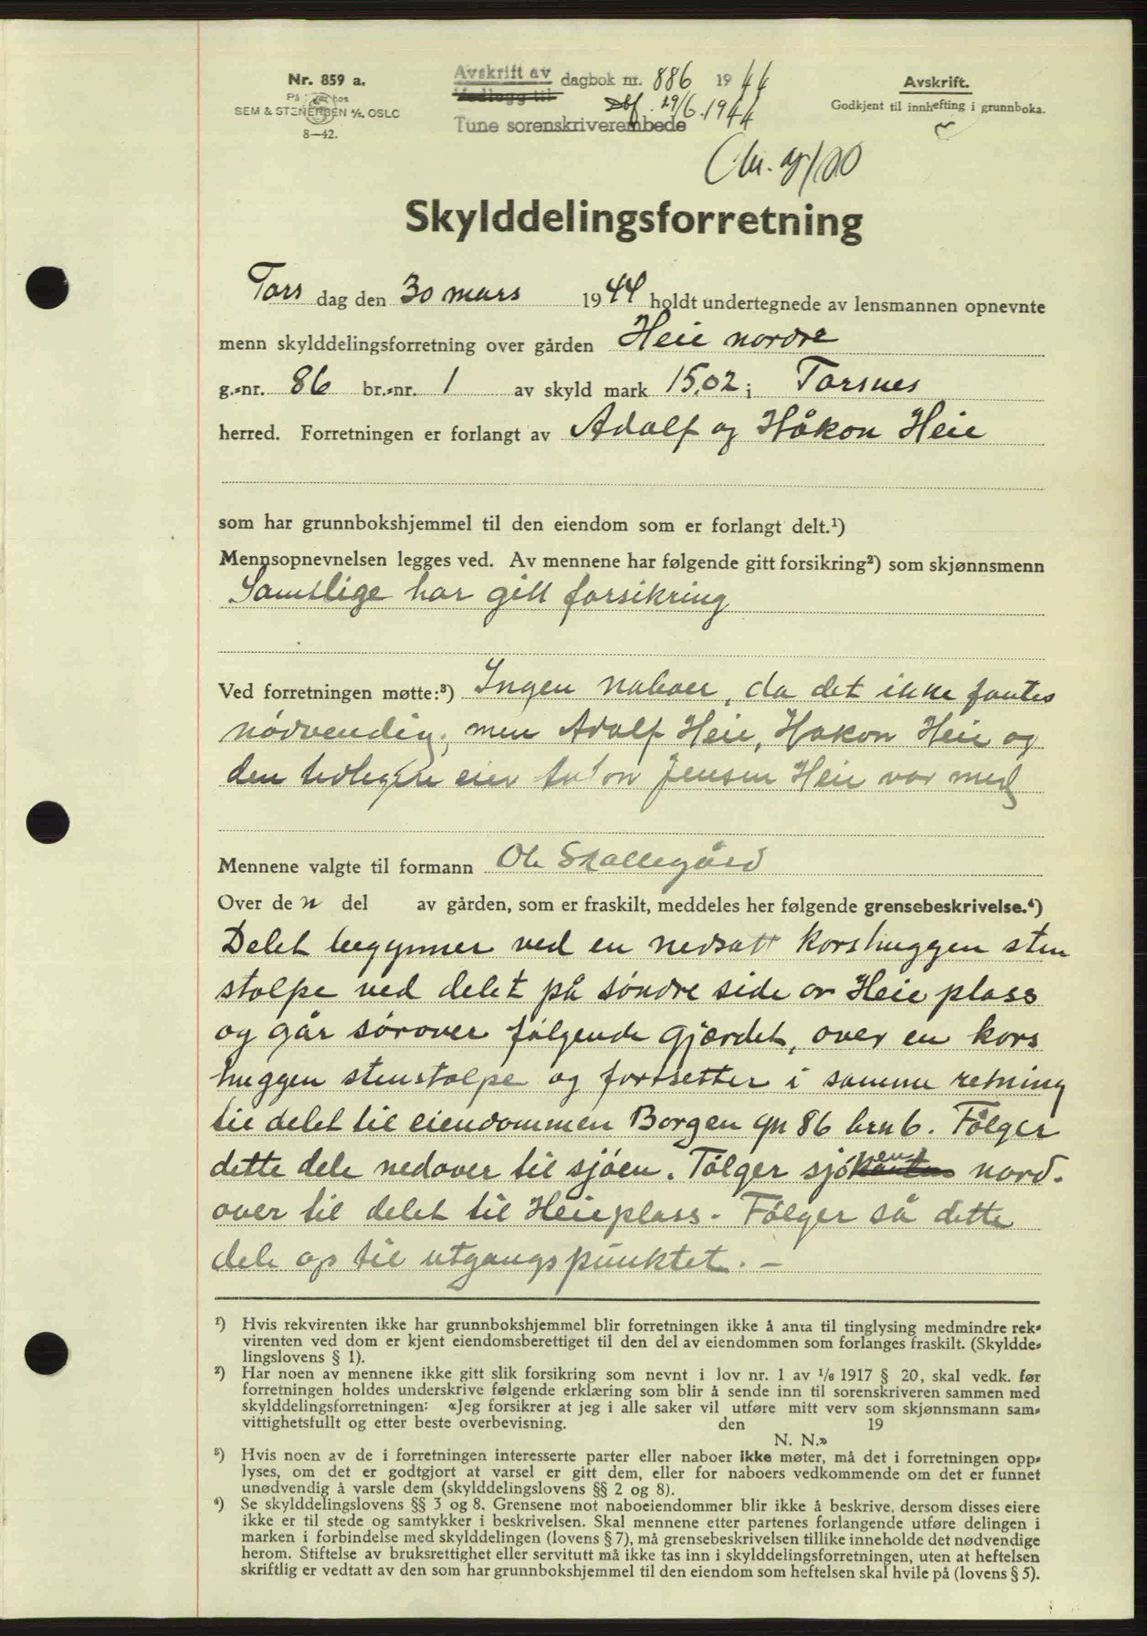 Nr. 859 a.
På lager hos
SEM & STENERSEN A/S, OSLO
8—42.
Avskrift av
Vedlegg til
dagbok nr. 886 1944
29/6.1944
Tune sorenskriverembede
Avskrift.
Godkjent til innhefting i grunnboka.
Skylddelingsforretning
Tors dag den 30 mars 1944 holdt undertegnede av lensmannen opnevnte
menn skylddelingsforretning over gården Heie nordre
g.-nr. 86 br.-nr. 1 av skyld mark 15,02 i Torsnes
herred. Forretningen er forlangt av Adolf og Håkon Heie
som har grunnbokshjemmel til den eiendom som er forlangt delt.¹)
Mennsopnevnelsen legges ved. Av mennene har følgende gitt forsikring²) som skjønnsmenn
Samtlige har gitt forsikring
Ved forretningen møtte:³) Ingen naboer, da det ikke fantes
nødvendig, men Adolf Heie, Håkon Heie og
den tidligere eier Anton Jensen Heie var med
Mennene valgte til formann Ole Skallegård
Over den del av gården, som er fraskilt, meddeles her følgende grensebeskrivelse.⁴)
Delet begynner ved en nedsatt korshuggen sten
stolpe ved delet på søndre side av Heie plass
og går sørover følgende gjerdet, over en kors
huggen stenstolpe og fortsetter i samme retning
til delet til eiendommen Borgen gn 86 brn 6. Følger
dette dele nedover til sjøen. Følger sjøen nord-
over til delet til Heieplass. Følger så dette
dele op til utgangspunktet. —
¹) Hvis rekvirenten ikke har grunnbokshjemmel blir forretningen ikke å anta til tinglysing medmindre rek-
virenten ved dom er kjent eiendomsberettiget til den del av eiendommen som forlanges fraskilt. (Skyldde-
lingslovens § 1).
²) Har noen av mennene ikke gitt slik forsikring som nevnt i lov nr. 1 av 1/6 1917 § 20, skal vedk. før
forretningen holdes underskrive følgende erklæring som blir å sende inn til sorenskriveren sammen med
skylddelingsforretningen: «Jeg forsikrer at jeg i alle saker vil utføre mitt verv som skjønnsmann sam-
vittighetsfullt og etter beste overbevisning. den 19
N. N.»
³) Hvis noen av de i forretningen interesserte parter eller naboer ikke møter, må det i forretningen opp-
lyses, om det er godtgjort at varsel er gitt dem, eller for naboers vedkommende om det er funnet
unødvendig å varsle dem (skylddelingslovens §§ 2 og 8).
⁴) Se skylddelingslovens §§ 3 og 8. Grensene mot naboeiendommer blir ikke å beskrive, dersom disses eiere
ikke er til stede og samtykker i beskrivelsen. Skal mennene etter partenes forlangende utføre delingen i
marken i forbindelse med skylddelingen (lovens § 7), må grensebeskrivelsen tillike inneholde det nødvendige
herom. Stiftelse av bruksrettighet eller servitutt må ikke tas inn i skylddelingsforretningen, uten at heftelsen
skriftlig er vedtatt av den som har grunnbokshjemmel til den eiendom som heftelsen skal hvile på (lovens § 5).